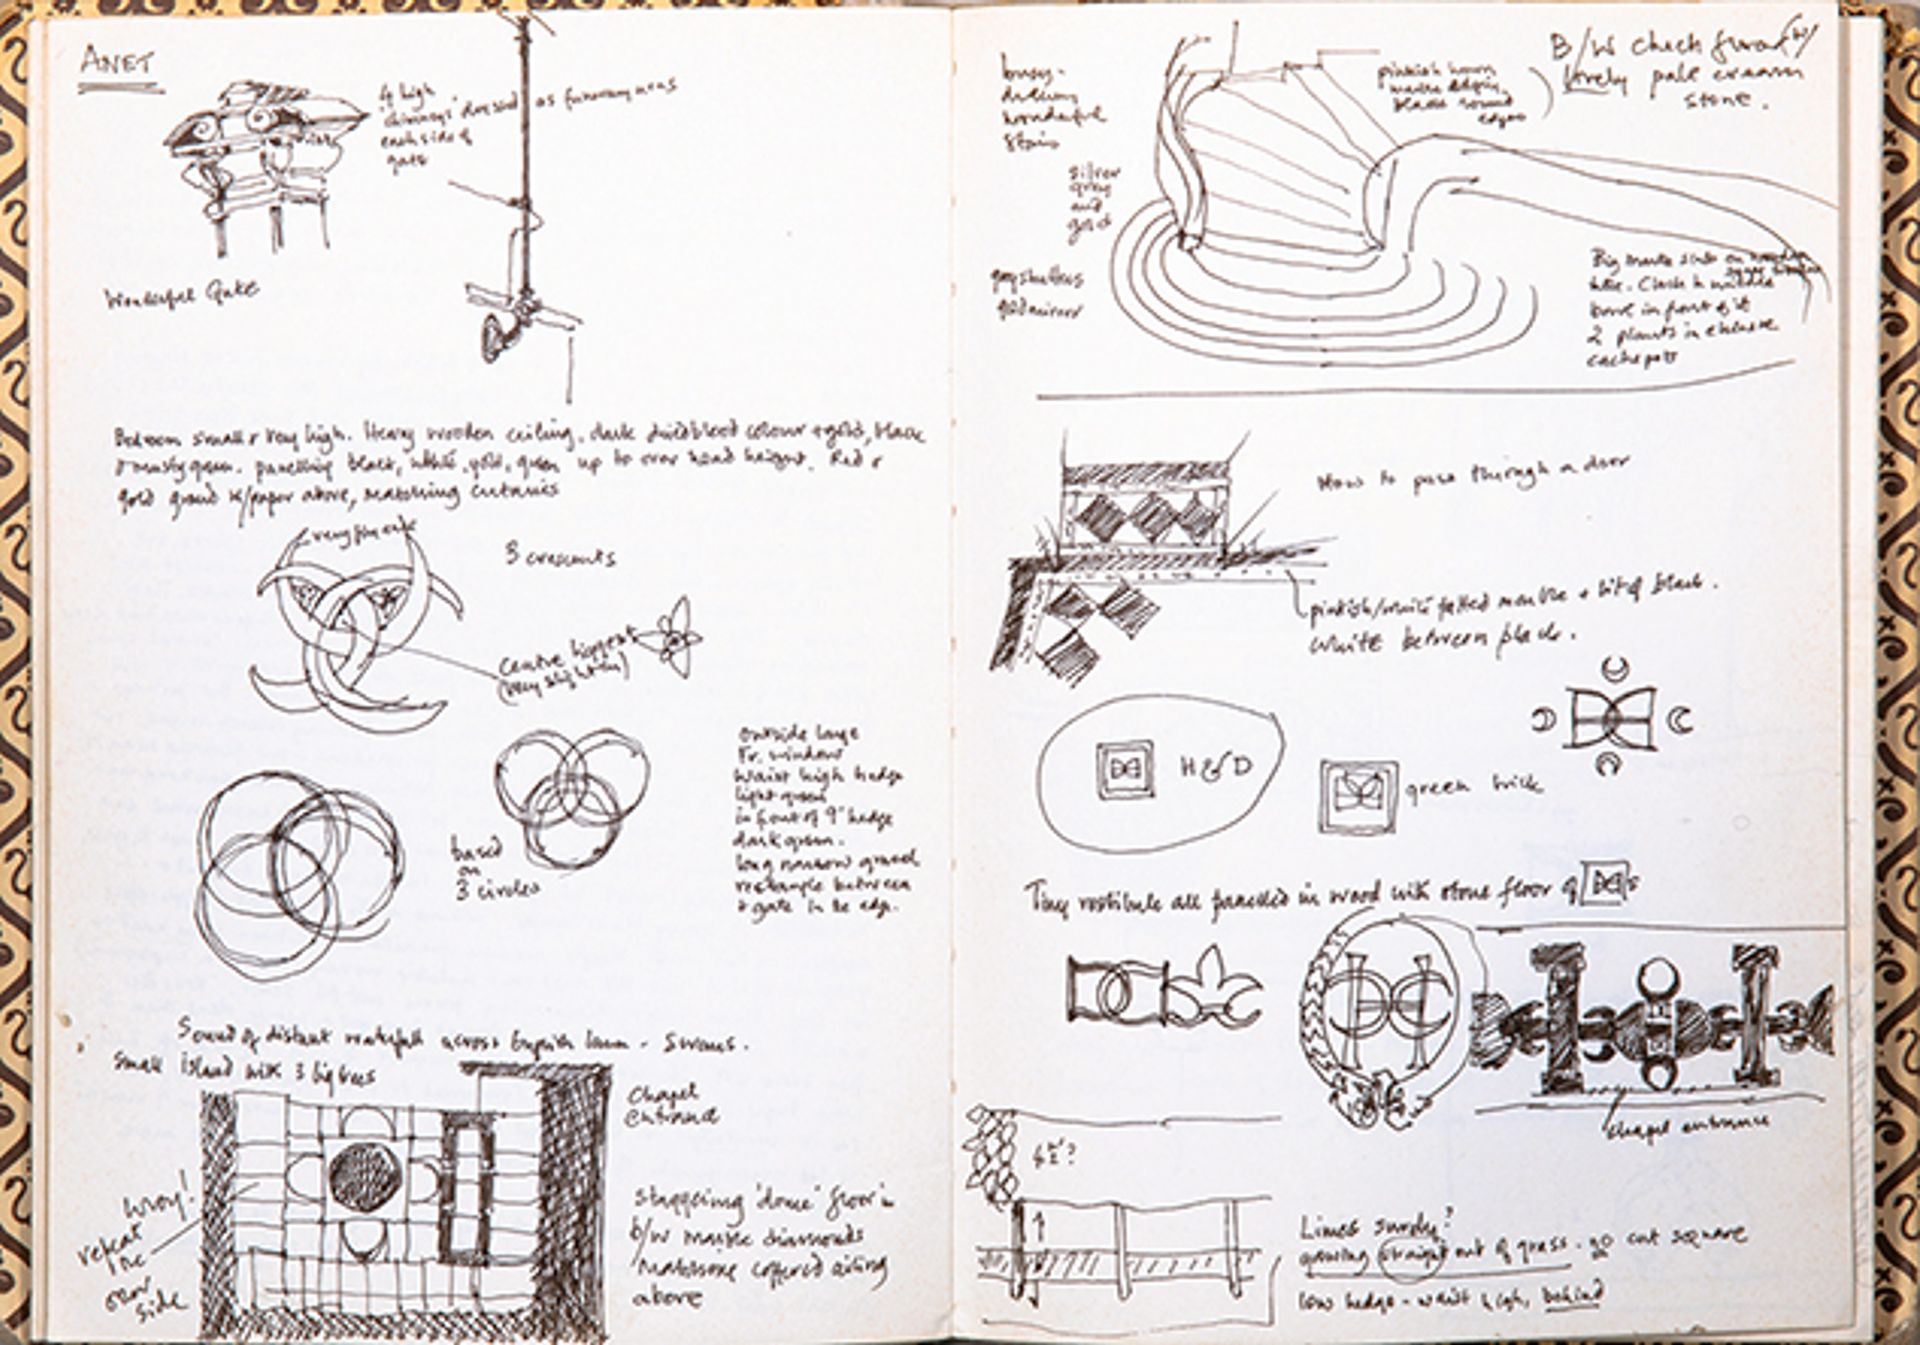 ANET
4 high
'chimneys' dressed as funerary urns
each side of
gate
Wonderful Gate
Bedroom small & very high. Heavy wooden ceiling, dark dried blood colour & gold, black
& musty green. panelling black, white, gold, green up to over head height. Red &
gold grand w/paper above, matching curtains
3 crescents
centre biggest
(very slightly)
based
on
3 circles
outside large
Fr. window
Waist high hedge
light green
in front of 9" hedge
dark green.
long narrow gravel
rectangle between
& gate in the edge.
Sound of distant waterfall across English lawn - Swans.
Small island with 3 big trees
Chapel
entrance
wrong!
repeat
the
other
side
staggering 'dome' floor in
b/w marble diamonds
matching coffered ceiling
above
B/W check floor w/
lovely pale cream
stone.
wonderful
stairs
silver
grey
and
gold
grey shutters
gold mirror
black round
edges
Big marble slab on wooden
here. Clock in middle
bowl in front of it
2 plants in
cachepots
How to pass through a door
pinkish/white marble + bit of black.
White between black.
H & D
green brick
Tiny vestibule all panelled in wood with stone floor of
chapel entrance
Limes surely?
growing straight out of grass - go cut square
low hedge - waist high, behind